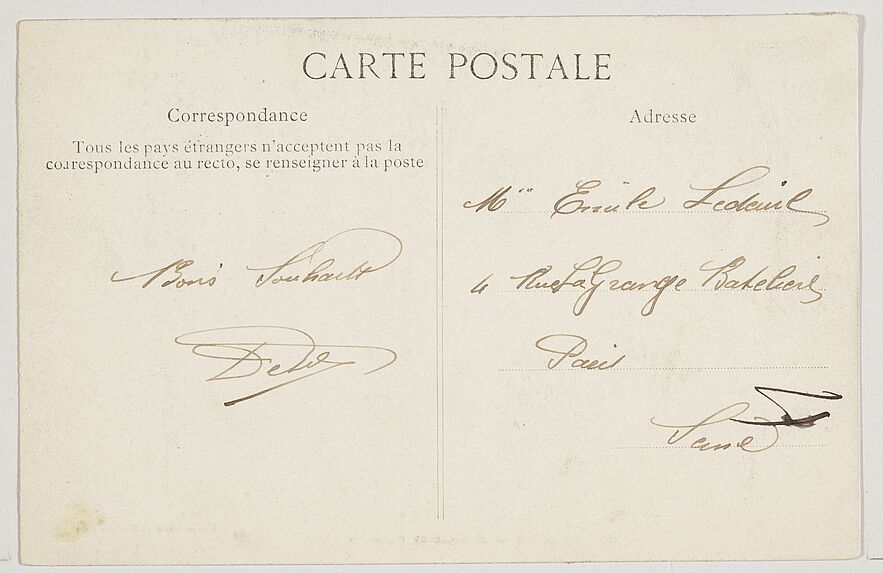 CARTE POSTALE
Correspondance
Tous les pays étrangers n'acceptent pas la
correspondance au recto, se renseigner à la poste
Bons Souhaits
Adresse
Emile Ledeuil
4 Rue La Grange Batelière
Paris
Seine